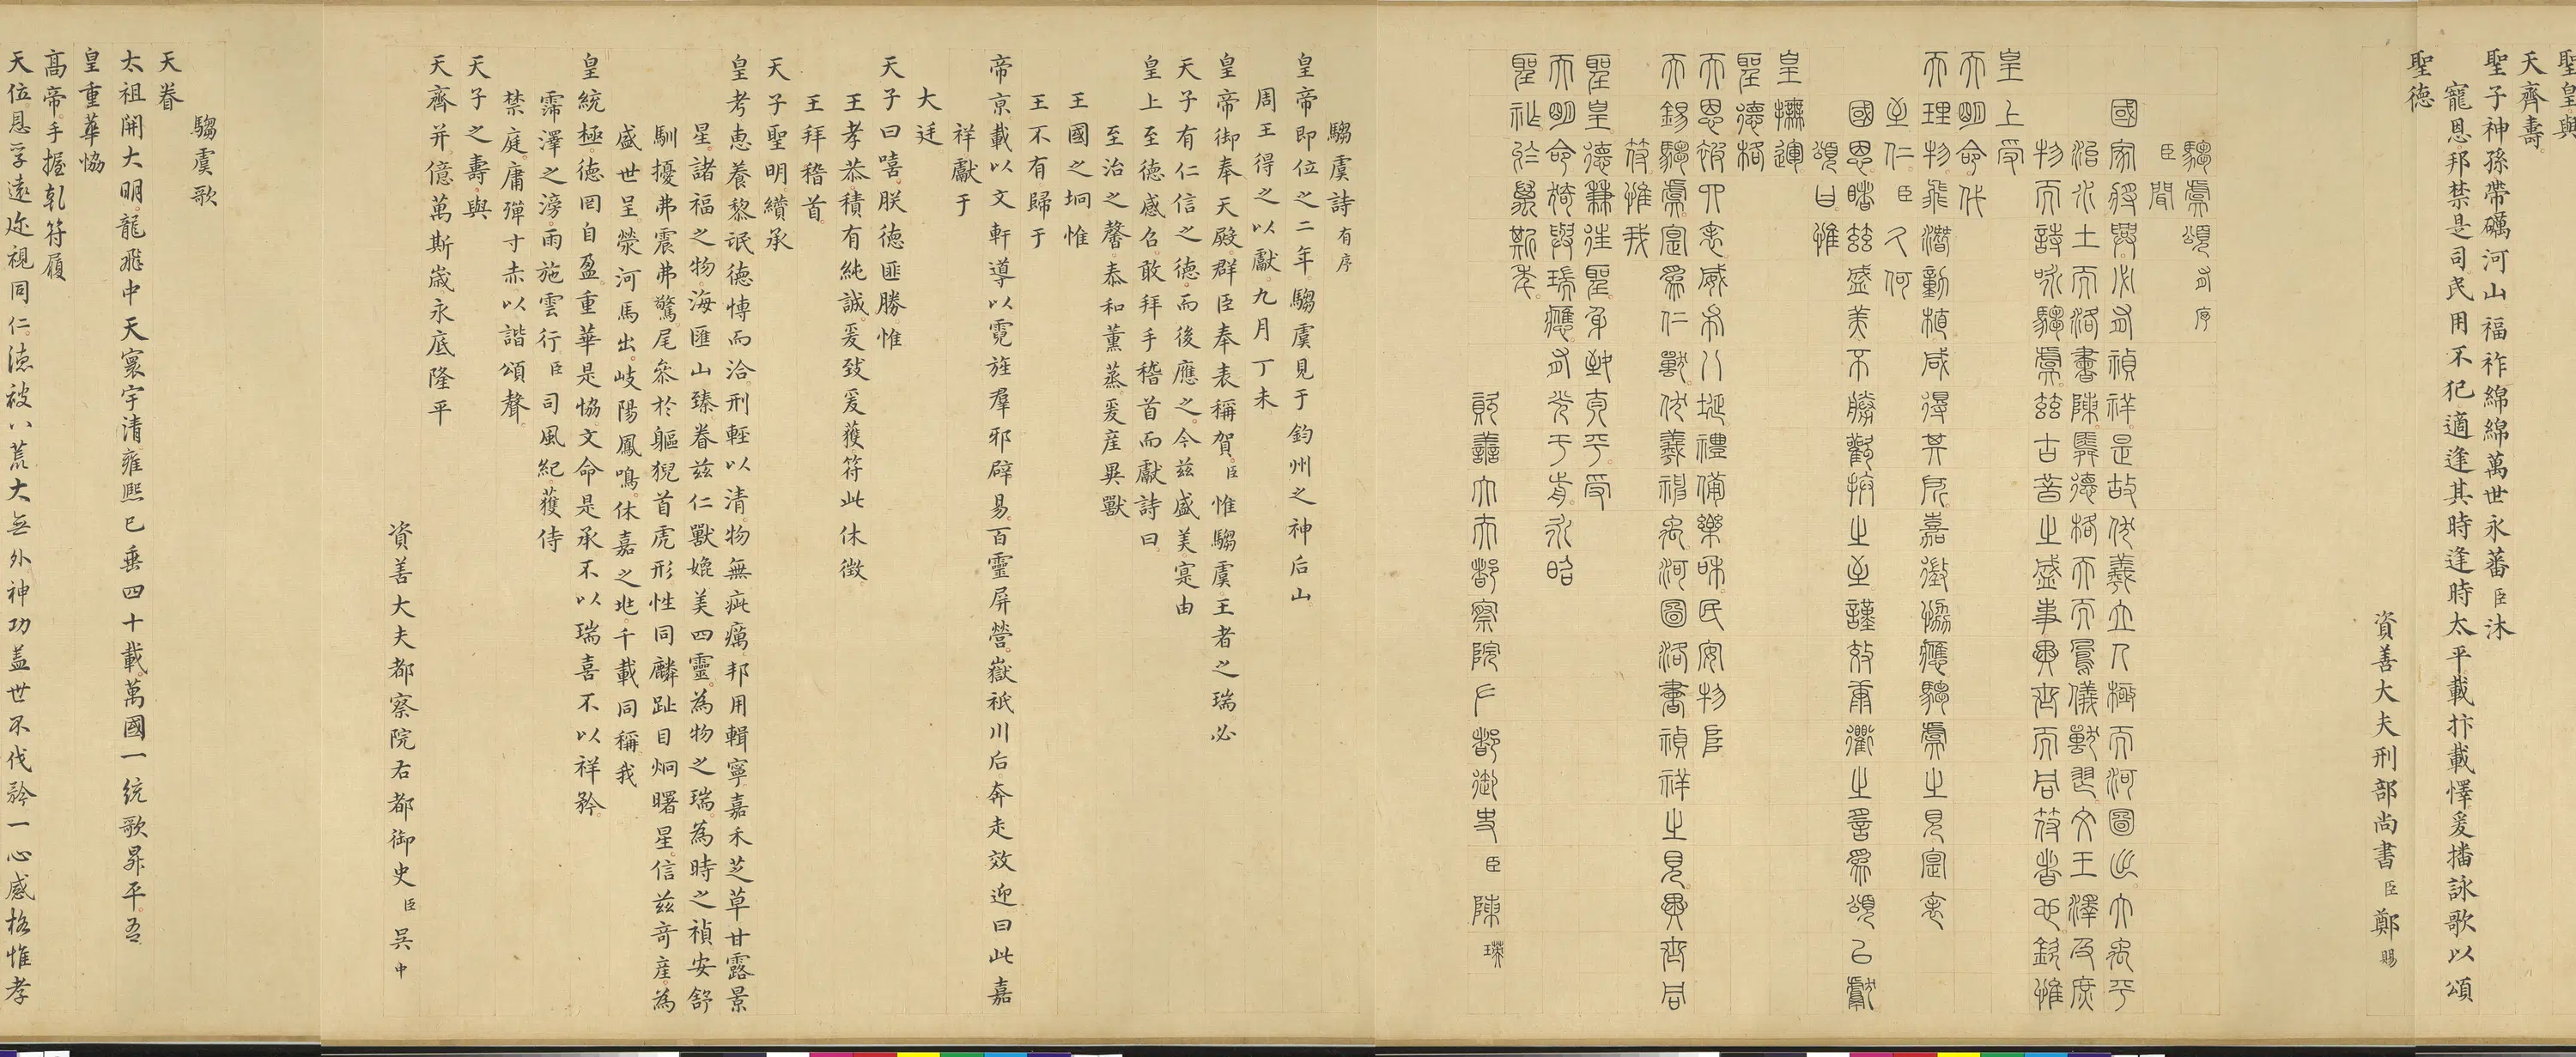 聖皇與
天齊壽
聖子神孫帶礪河山福祚綿綿萬世永蕃臣沐
寵恩邦禁是司民用不犯適逢其時逢時太平載抃載懌爰播詠歌以頌
聖德
資善大夫刑部尚書臣鄭賜
騶虞頌有序
臣聞
國家將興必有禎祥是故伏羲立人極而河圖出大禹平
治水土而洛書陳舜德格天而鳳儀獸舞文王澤及庶
物而詩咏騶虞茲古昔之盛事與齊天合符者也欽惟
皇上受
天明命代
天理物飛潛動植咸得其所嘉徵協應騶虞之見寔表
至仁臣久何
國恩睹茲盛美不勝歡抃之至謹效康衢之謠為頌以獻
頌曰惟
皇撫運
聖德格
天恩被四表威布八埏禮備樂和民安物阜
天錫騶虞寔為仁獸伏羲禹河圖洛書禎祥之見與齊合
符惟我
聖皇德兼往聖身致真平受
天明命猗與瑞應有光于前永昭
聖祉於萬斯年
資善大夫都察院左都御史臣陳瑛
騶虞詩有序
皇帝即位之二年騶虞見于鈞州之神后山
周王得之以獻九月丁未
皇帝御奉天殿群臣奉表稱賀臣惟騶虞王者之瑞必
天子有仁信之德而後應之今茲盛美寔由
皇上至德感召敢拜手稽首而獻詩曰
至治之馨泰和薰蒸爰產異獸
王國之坰惟
王不有歸于
帝京載以文軒導以霓旌羣邪辟易百靈屏營嶽祇川后奔走效迎曰此嘉
祥獻于
大廷
天子曰嘻朕德匪勝惟
王孝恭積有純誠爰致爰獲符此休徵
王拜稽首
天子聖明纘承
皇考惠養黎氓德博而洽刑輕以清物無疵癘邦用輯寧嘉禾芝草甘露景
星諸福之物海匯山臻眷茲仁獸媲美四靈為物之瑞為時之禎安舒
馴擾弗震弗驚尾參於軀猊首虎形性同麟趾目炯曙星信茲奇產為
盛世呈滎河馬出岐陽鳳鳴休嘉之兆千載同稱我
皇統極德罔自盈重華是協文命是承不以瑞喜不以祥矜
霈澤之滂雨施雲行臣司風紀獲侍
禁庭庸殫寸赤以諧頌聲
天子之壽與
天齊并億萬斯歲永底隆平
資善大夫都察院右都御史臣吳中
騶虞歌
天眷
太祖開大明龍飛中天寰宇清雍熙已垂四十載萬國一統歌昇平吾
皇重華協
高帝手握乾符履
天位恩孚遠迩視同仁德被八荒大無外神功盖世不伐矜一心感格惟孝